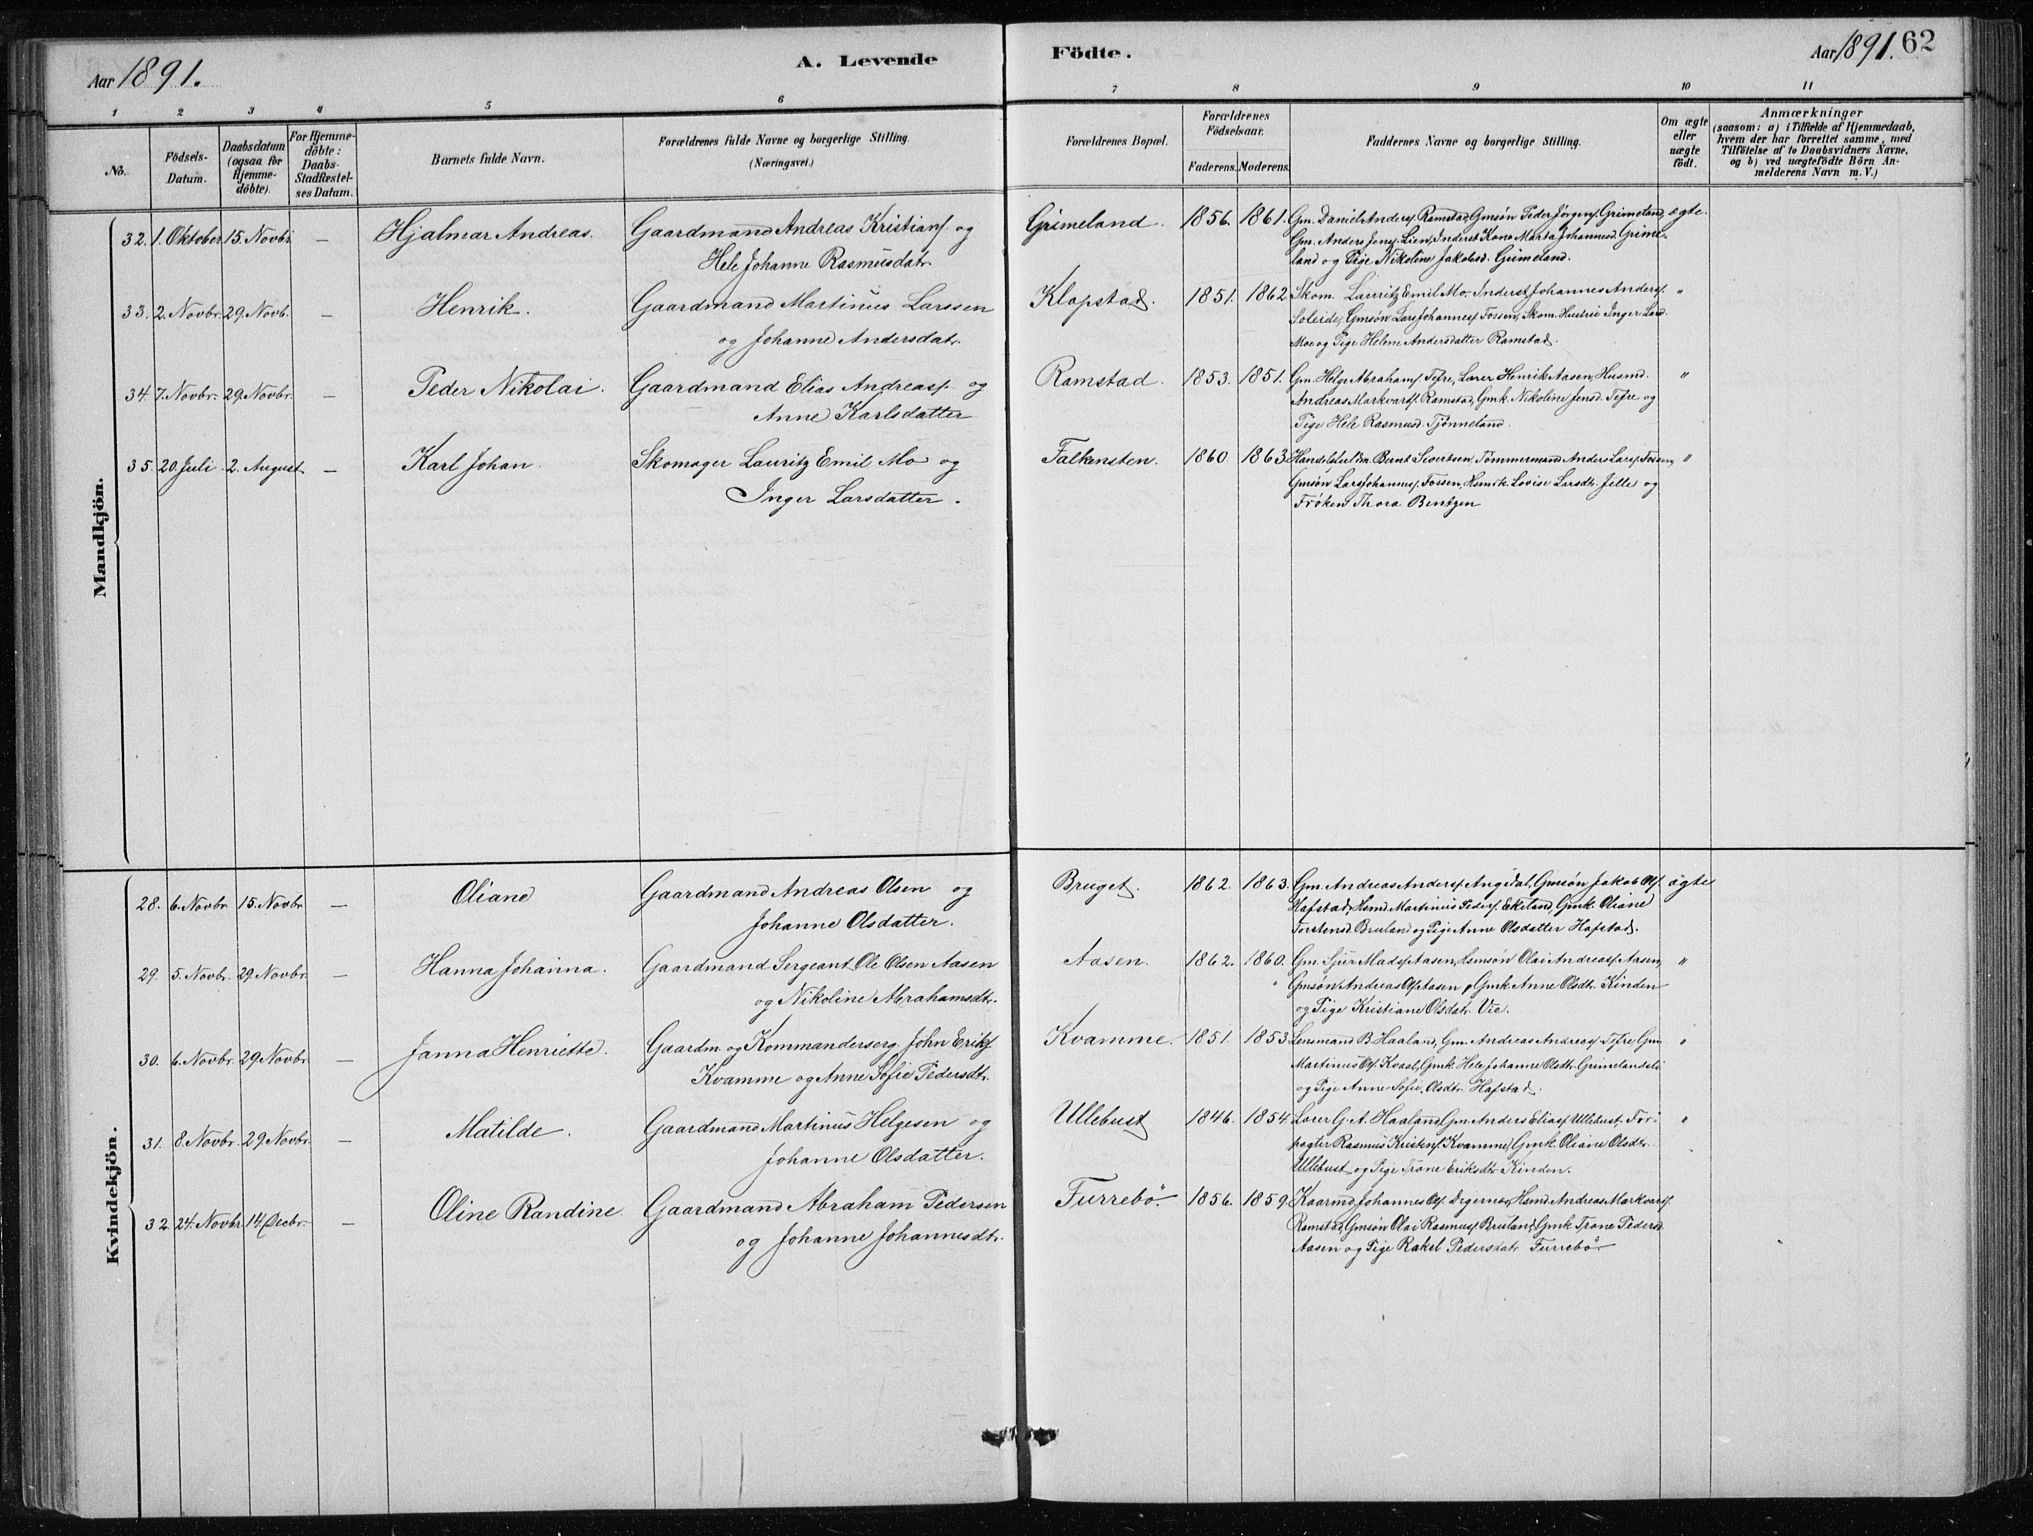 Aar 1891.
A. Levende
Födte.
Aar 1891. 62
1 2 3 4 5 6 7 8 9 10 11
No.
Födsels-
Datum.
Daabsdatum
(ogsaa for
Hjemme-
döbte).
For Hjemme-
döbte:
Daabs-
Stadfæstel-
ses Datum.
Barnets fulde Navn.
Forældrenes fulde Navne og borgerlige Stilling.
(Næringsvei.)
Forældrenes Bopæl.
Forældrenes
Födselsaar.
Faderens. Moderens.
Faddernes Navne og borgerlige Stilling.
Om ægte
eller
uægte
födt.
Anmærkninger
(saasom: a) i Tilfælde af Hjemmedaab,
hvem der har forrettet samme, med
Tilföielse af to Daabsvidners Navne,
og b) ved uægtefödte Börn An-
melderens Navn m. V.)
Mandkjön.
32. 1. Oktober 15. Novbr. — Hjalmar Andreas. Gaardmand Andreas Kristians. og
Hele Johanne Rasmusdatr.
Grimeland. 1856. 1861. Gm. Daniel Anders. Ramstad, Gmsön Peder Jörgens. Grimeland, ægte.
Gm. Anders Jens. Lien, Inderst Kone Marta Johannesd. Grime-
land og Pige Nikoline Jakobsd. Grimeland.
33. 2. Novbr. 29. Novb. — Henrik. Gaardmand Martinus Larssen
og Johanne Andersdatr.
Klopstad. 1851. 1862. Skom. Lauritz Emil Mo, Inderst Johannes Anders. "
Soleide, Gmsön Lars Johannes. Fossen, Skom. Hustru Inger Larsd.
Moe og Pige Helene Andersdatter Ramstad.
34. 7. Novbr. 29. Novbr. — Peder Nikolai. Gaardmand Elias Andreas. og
Anne Karlsdatter
Ramstad. 1853. 1851. Gm. Helge Abrahams. Tefre, Lærer Henrik Aasen, Husmd. "
Andreas Markvards. Ramstad, Gmk. Nikoline Jensd. Tefre og
Pige Hele Rasmusd. Tjönneland.
35. 20. Juli 2. August — Karl Johan. Skomager Lauritz Emil Mo og
Inger Larsdatter.
Falkensten. 1860. 1863. Bernt Sivertsen, Tömmermand Anders Lars. Fossen, "
Gmsön Lars Johannes. Fossen, Lovise Larsdtr. Jelle og
Fröken Thora Bentzen
Kvindekjön.
28. 6. Novbr. 15. Novbr. — Oliane Gaardmand Andreas Olsen og
Johanne Olsdatter.
Bruget. 1862. 1863. Gm. Andreas Anders. Angedal, Gmsön Jakob Ols. ægte
Hafstad, Hsmd. Martinus Peders. Ekeland, Gmk. Oliane
Torstensd. Bruland og Pige Anne Olsdatter Hafstad.
29. 5. Novbr. 29 Novbr. — Hanna Johanna. Gaardmand Sergeant Ole Olsen Aasen
og Nikoline Abrahamsdtr.
Aasen. 1862. 1860. Gm. Sjur Mads. Aasen, Hsmsön Olai Andreas. Aasen, "
Gmsön Andreas Ols. Aasen, Gmk. Anne Olsdtr. Kinden
og Pige Kristiane Olsdatr. Vie.
30. 6. Novbr. 29 Novbr. — Janna Henriette. Gaardm. og Kommanderserg. John Eriks.
Kvamme og Anne Sofie Pedersdtr.
Kvamme. 1851. 1853. Lensmand B. Haaland, Gm. Andreas Andreas. Tefre, Gm. "
Martinus Ols. Kvaal, Gmk. Hele Johanne Olsdtr. Grimelandsli
og Pige Anne Sofie Olsdtr. Hafstad.
31. 8. Novbr. 29 Novbr. — Matilde. Gaardmand Martinus Helgesen og
Johanne Olsdatter.
Ullebust 1846. 1854. Lærer G. A. Haaland, Gm. Anders Elias. Ullebust, For- "
pagter Rasmus Kristens. Kvamme, Gmk. Oliane Olsdtr.
Ullebust og Pige Trone Eriksdtr. Kinden.
32 24. Novbr. 14. Decbr. — Oline Randine. Gaardmand Abraham Pedersen
og Johanne Johannesdtr.
Furrebö. 1856. 1859. Kaarmd. Johannes Ols. Degernæs, Hsmd. Andreas Markvards.
Ramstad, Gmsön Olai Rasmus. Bruland, Gmk. Trone Pedersd.
Aasen og Pige Rakel Pedersdatr. Furrebö